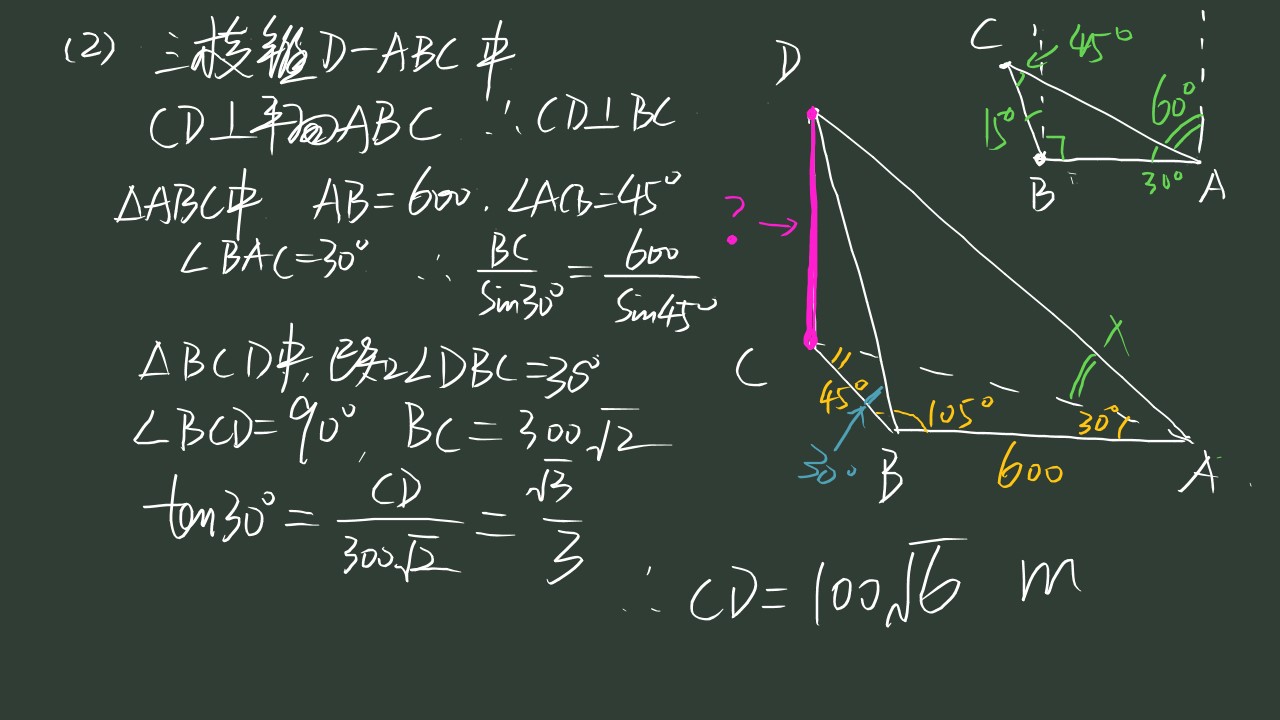 (2) 三棱锥D-ABC中
CD⊥平面ABC ∴CD⊥BC
△ABC中 AB=600.∠ACB=45°
∠BAC=30° ∴ BC/Sin30° = 600/Sin45°
△BCD中,已知∠DBC=30°
∠BCD=90°, BC=300√2
tan30°= CD/300√2 = √3/3
∴ CD=100√6 m
D
?→
C
45°
30°
B
105°
600
30°
A
C
45°
15°
60°
B
30°
A